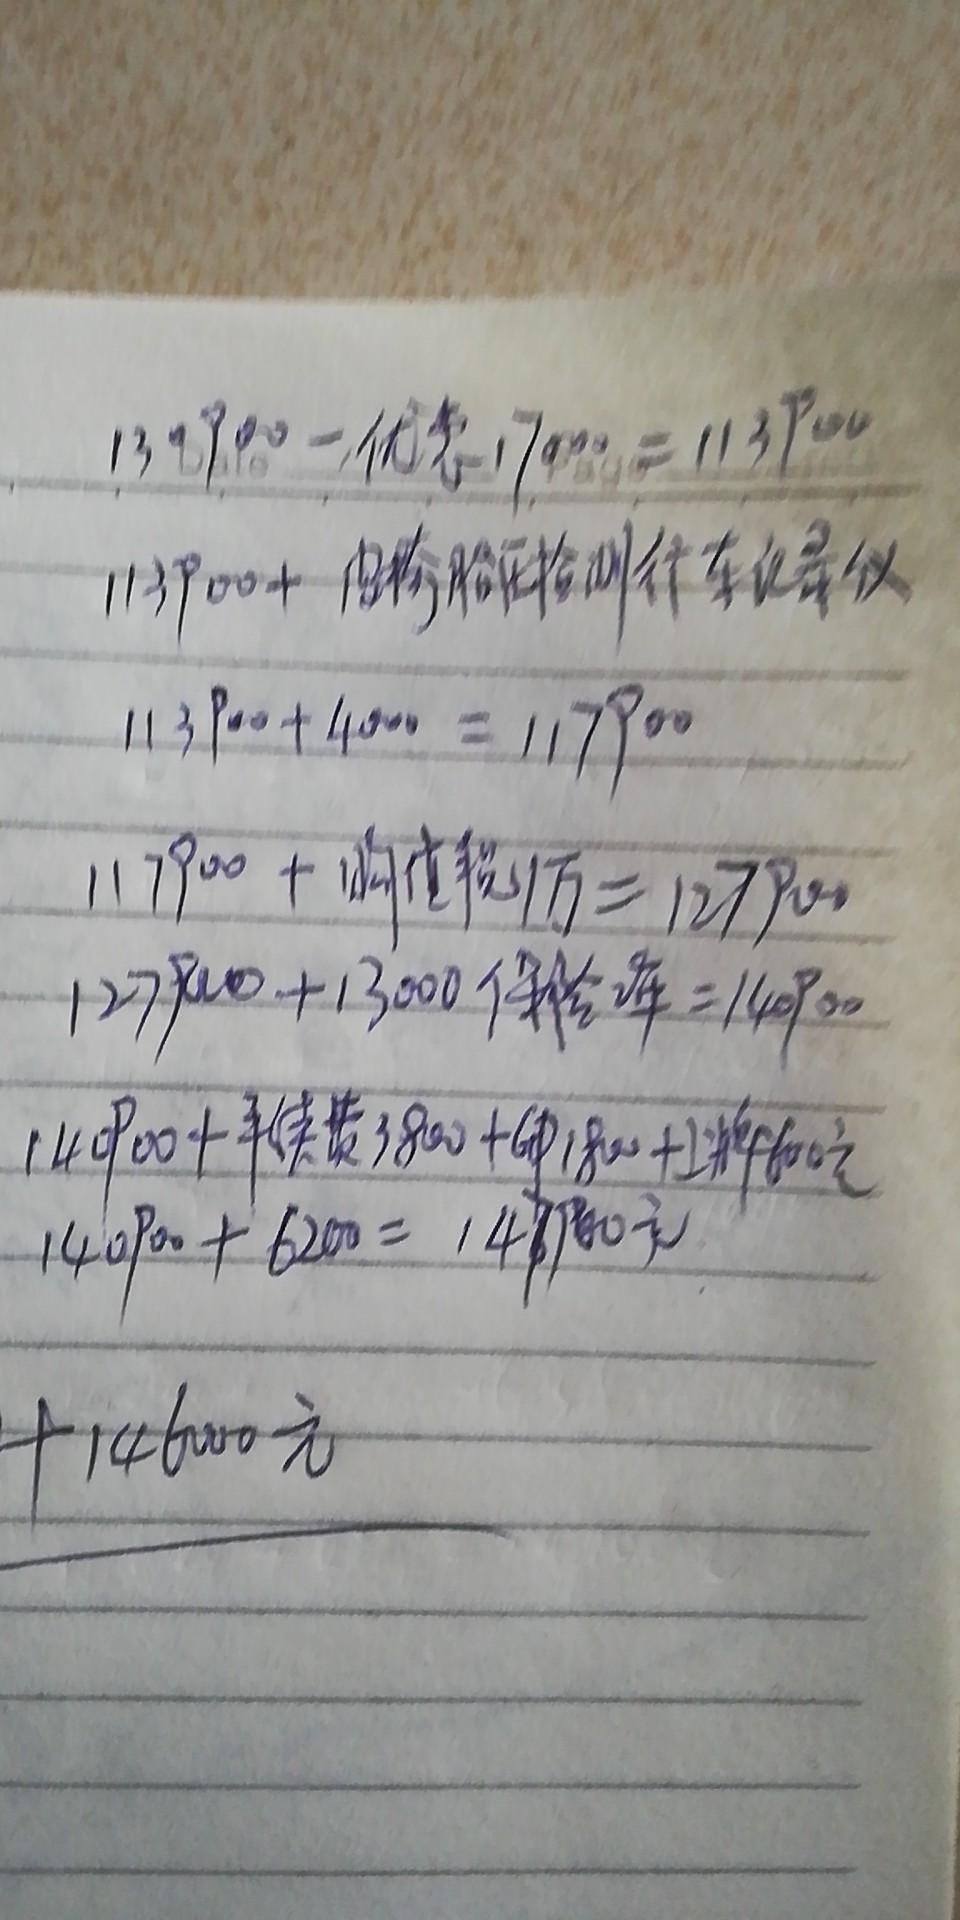 139900-优惠17000=113900
113900+ 胎压检测行车记录仪
113900+4000=117900
117900+购值税1万=127900
127900+13000保险2年=140900
140900+手续费3800+1800+上牌600元
140900+6200=147900元
+146000元